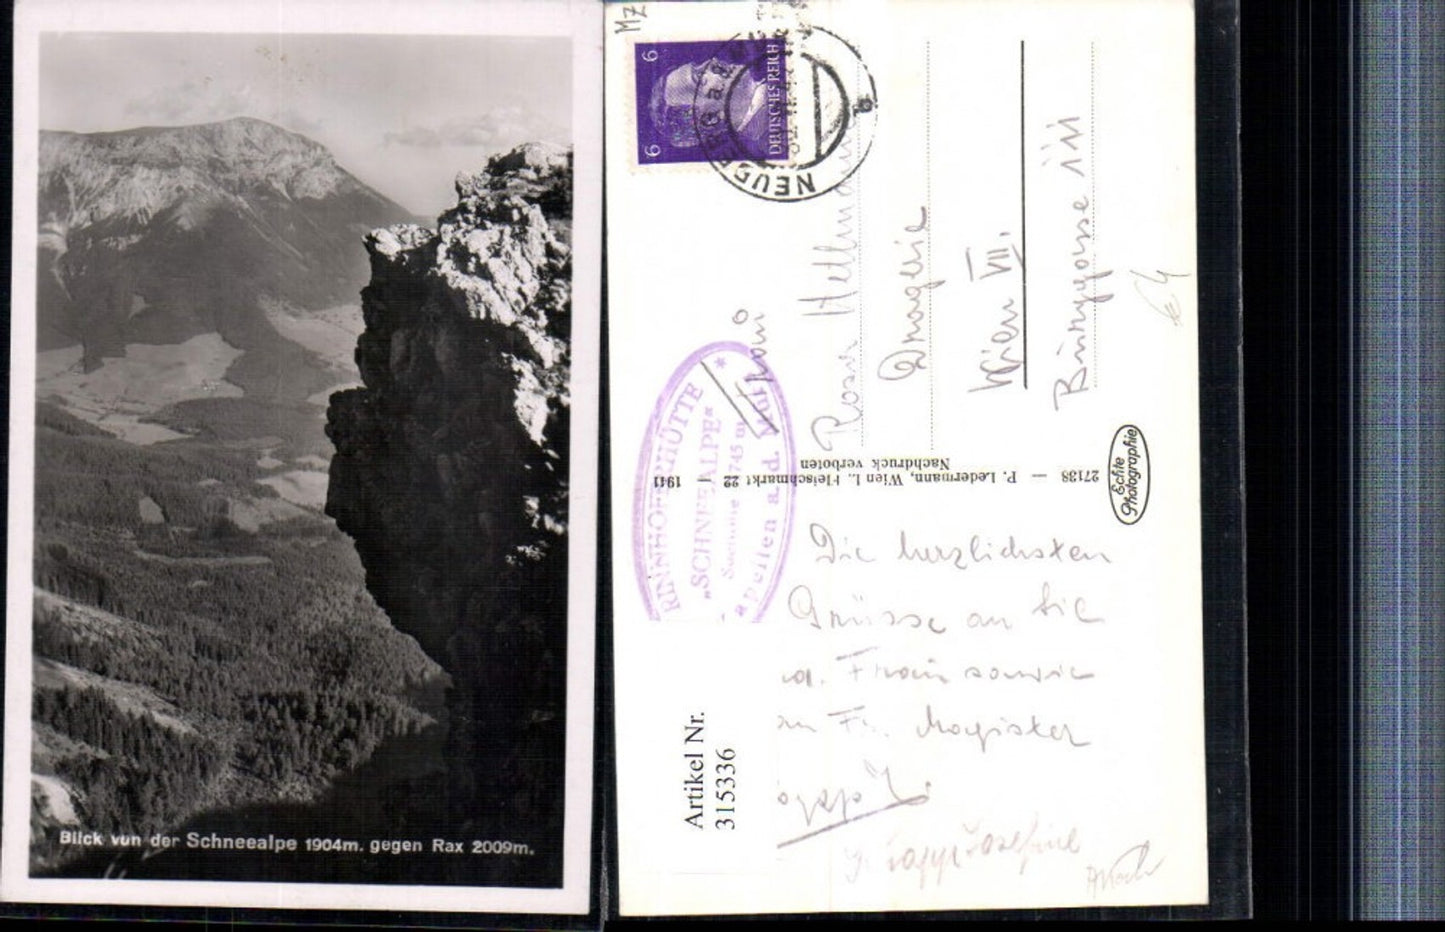 Blick von der Schneealpe 1904m. gegen Rax 2009m.
MZ
6 6
DEUTSCHES REICH
NEUBERG a.d.
RINNHOFERHÜTTE
*
„SCHNEEALPE“
Seehöhe 1745 m
Kapellen a. d. Mürz
27138 — P. Ledermann, Wien I., Fleischmarkt 22 — 1941
Nachdruck verboten
Echte
Photographie
Rosa Hellmann
Drogerie
Wien VII.
Die herzlichsten
Grüsse an Sie
u. Frau sowie
an Fr. Magister
Josefine
Artikel Nr.
315336